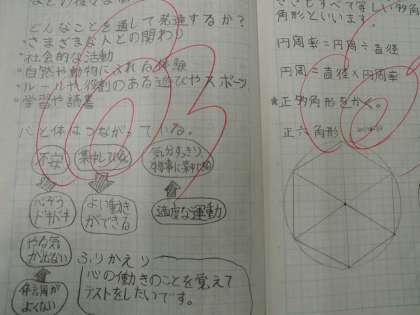 どんなことを通して発達するか?
・さまざまな人との関わり
・社会的な活動
・自然や動物にふれる体験
・ルールや役割のある遊びやスポーツ
・学習や読書
心と体はつながっている。
不安
集中して
気分すっきり
物事に集中
心ぞう
ドキドキ
よい動き
ができる
適度な運動
やる気
が出ない
体調が
よくない
ふりかえり
心の働きのことを覚えて
テストをしたいです。
角形といいます。
円周率=円周÷直径
円周=直径×円周率
*正多角形をかく。
正六角形